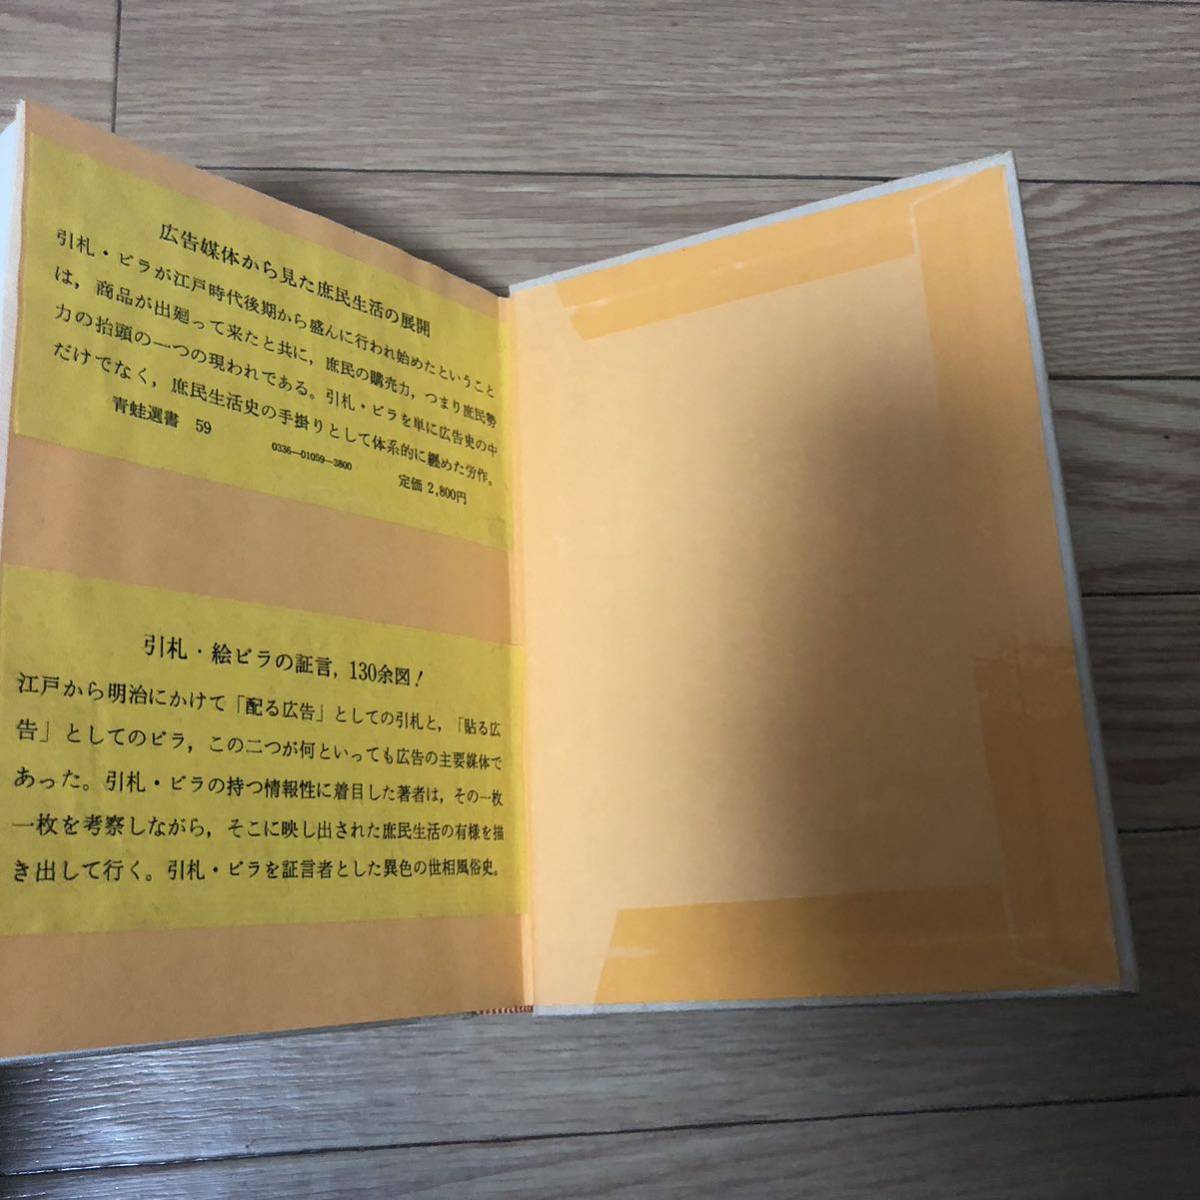 広告媒体から見た庶民生活の展開
引札・ビラが江戸時代後期から盛んに行われ始めたということ
は，商品が出廻って来たと共に，庶民の購売力，つまり庶民勢
力の抬頭の一つの現われである。引札・ビラを単に広告史の中
だけでなく，庶民生活史の手掛りとして体系的に纒めた労作。
青蛙選書 59
0336—01059—3800
定価 2,800円
引札・絵ビラの証言，130余図！
江戸から明治にかけて「配る広告」としての引札と，「貼る広
告」としてのビラ，この二つが何といっても広告の主要媒体で
あった。引札・ビラの持つ情報性に着目した著者は，その一枚
一枚を考察しながら，そこに映し出された庶民生活の有様を描
き出して行く。引札・ビラを証言者とした異色の世相風俗史。